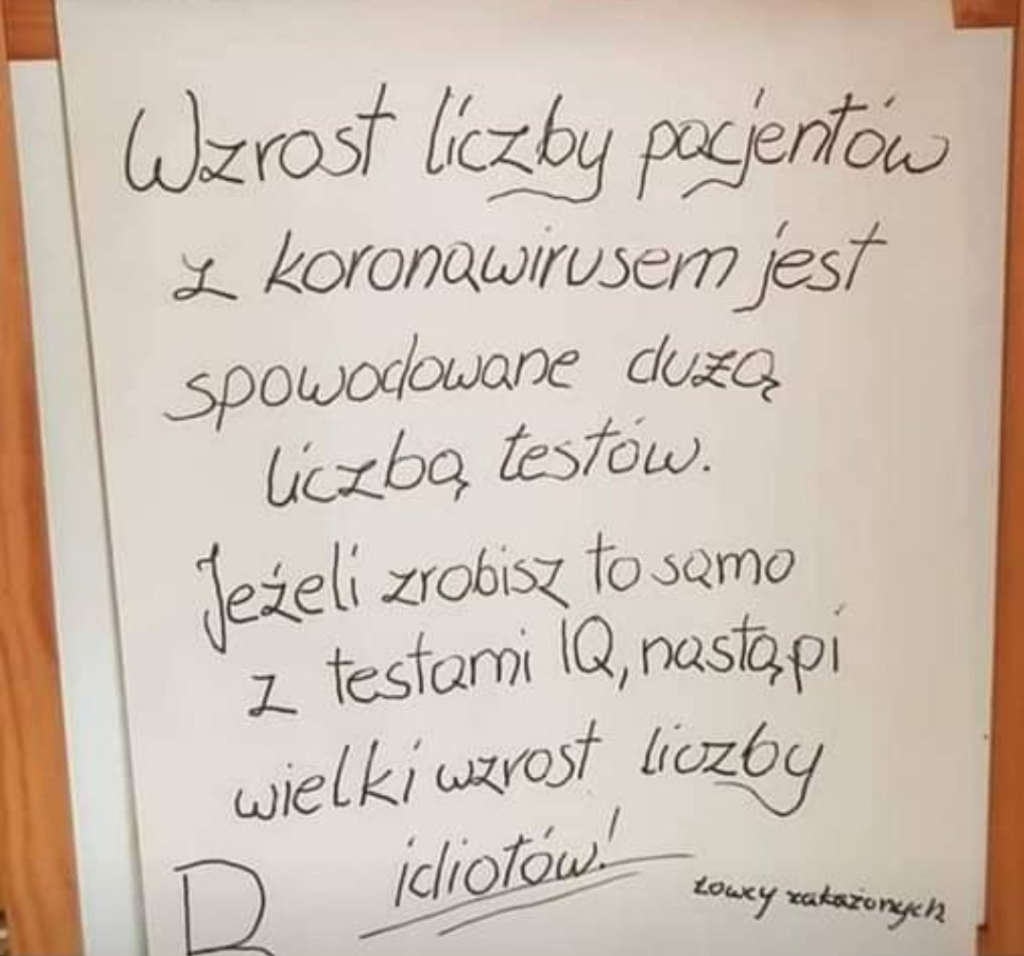 Wzrost liczby pacjentów
z koronawirusem jest
spowodowane dużą
liczbą testów.
Jeżeli zrobisz to samo
z testami IQ, nastąpi
wielki wzrost liczby
idiotów!
Łowcy zakażonych